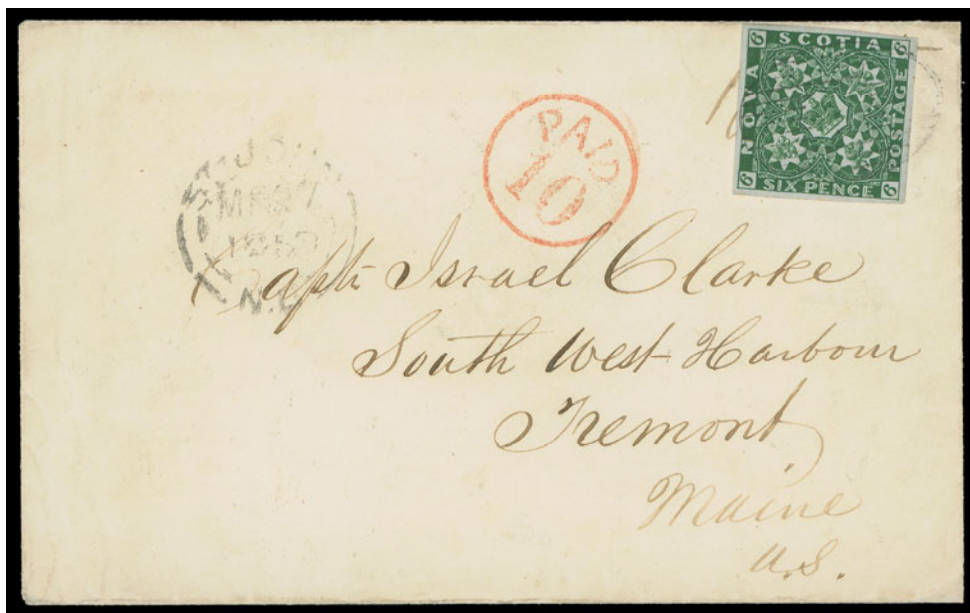 NOVA SCOTIA POSTAGE
SIX PENCE
6 6 6 6
PAID
10
Capt Israel Clarke
South West Harbour
Tremont
Maine
U.S.